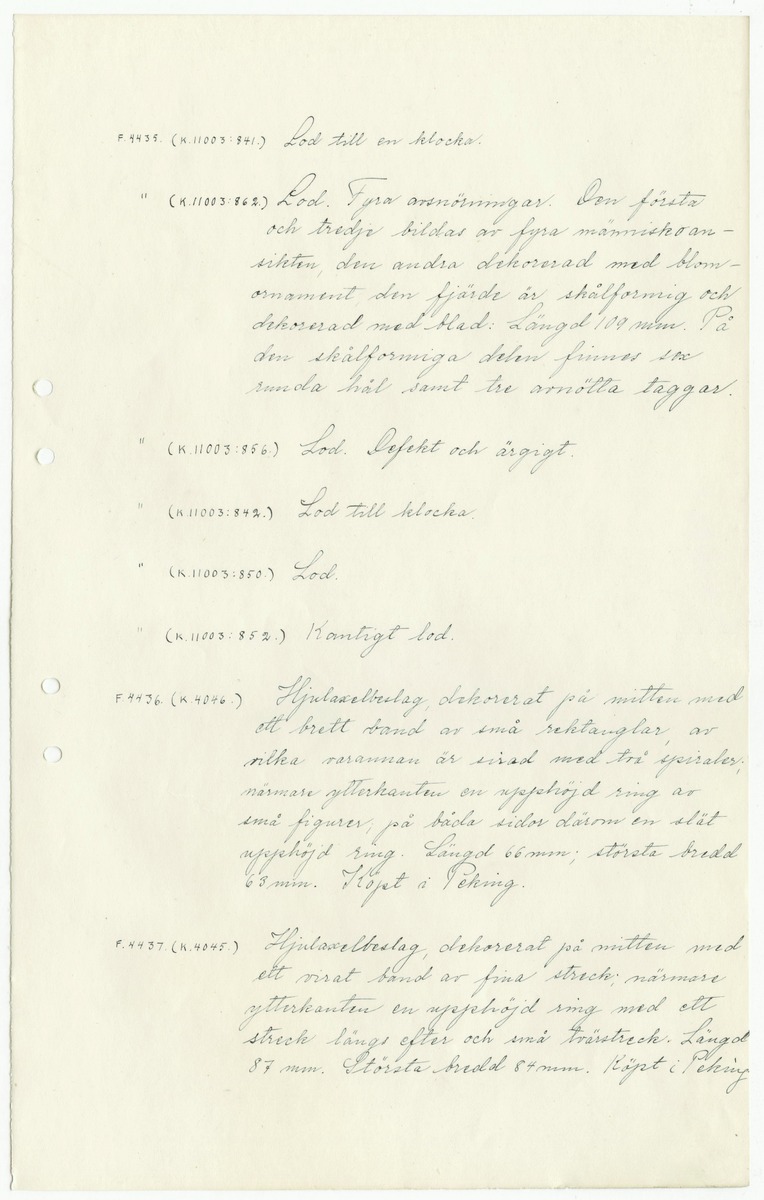 F.4435. (K.11003:841.) Lod till en klocka.
" (K.11003:862.) Lod. Fyra avsnörningar. Den första
och tredje bildas av fyra människoan-
sikten, den andra dekorerad med blom-
ornament, den fjärde är skålformig och
dekorerad med blad: Längd 109 mm. På
den skålformiga delen finnes sex
runda hål samt tre avnötta taggar.
" (K.11003:856.) Lod. Defekt och ärgigt.
" (K.11003:842.) Lod till klocka.
" (K.11003:850.) Lod.
" (K.11003:852.) Kantigt lod.
F.4436. (K.4046.) Hjulaxelbeslag, dekorerat på mitten med
ett brett band av små rektanglar, av
vilka varannan är sirad med två spiraler;
närmare ytterkanten en upphöjd ring av
små figurer, på båda sidor därom en slät
upphöjd ring. Längd 66 mm; största bredd
63 mm. Köpt i Peking.
F.4437. (K.4045.) Hjulaxelbeslag, dekorerat på mitten med
ett virat band av fina streck; närmare
ytterkanten en upphöjd ring med ett
streck längs efter och små tvärstreck. Längd
87 mm. Största bredd 84 mm. Köpt i Peking